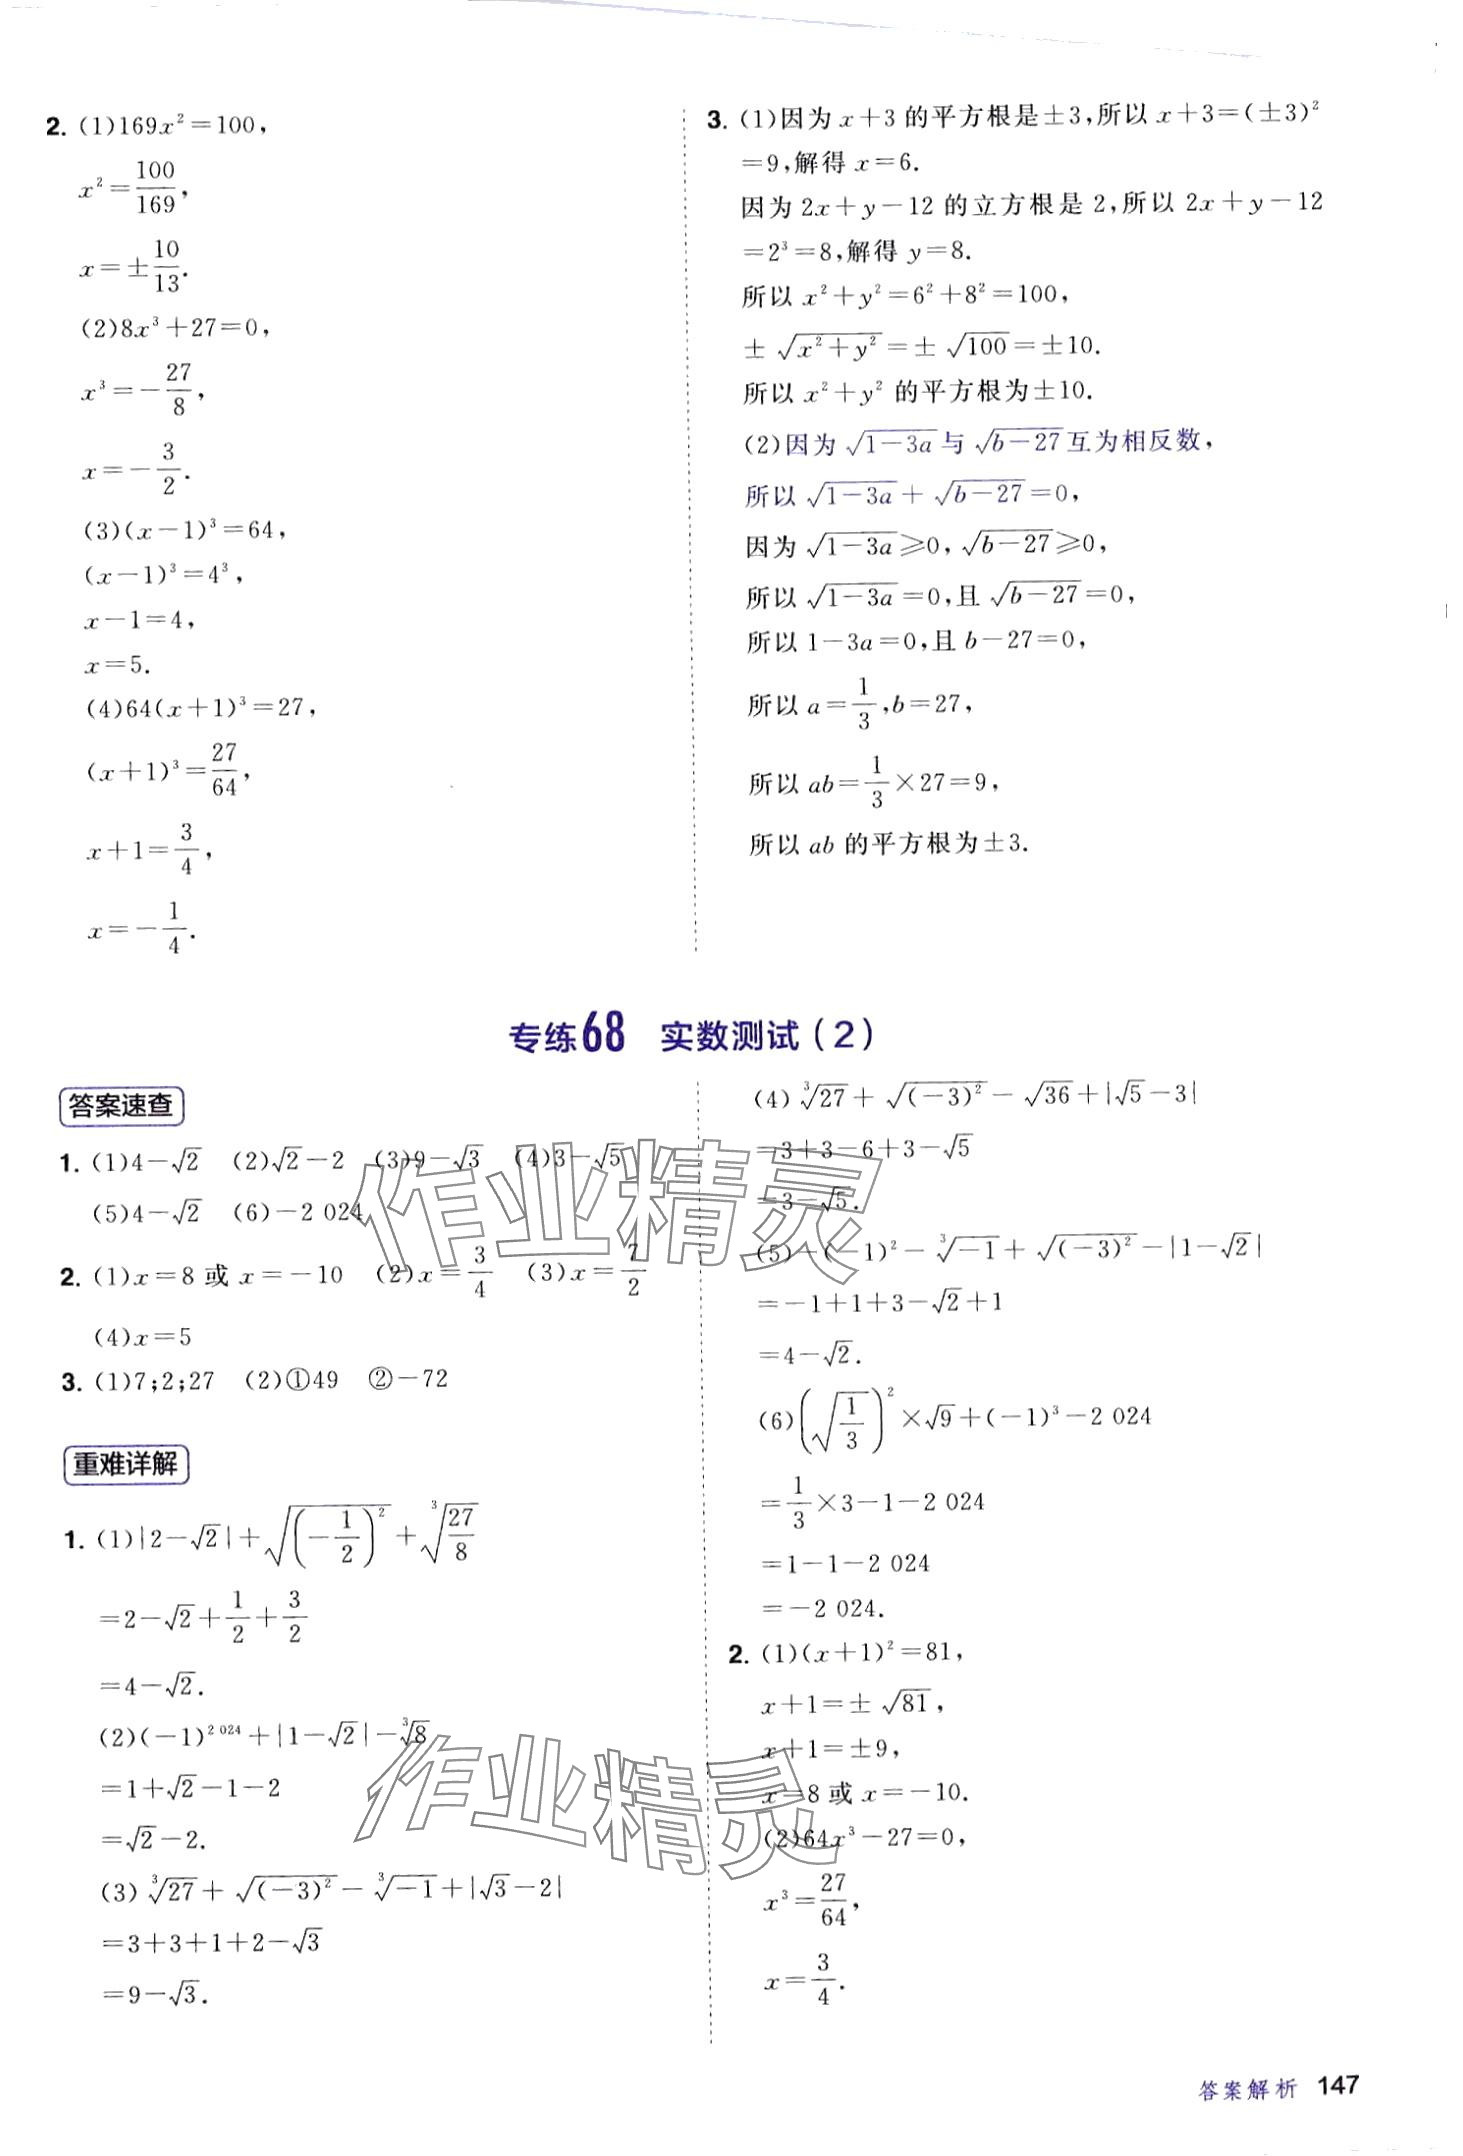 2. (1)169x²=100,
x²=100/169,
x=±10/13.
(2)8x³+27=0,
x³=-27/8,
x=-3/2.
(3)(x-1)³=64,
(x-1)³=4³,
x-1=4,
x=5.
(4)64(x+1)³=27,
(x+1)³=27/64,
x+1=3/4,
x=-1/4.
3. (1)因为 x+3 的平方根是±3,所以 x+3=(±3)²
=9,解得 x=6.
因为 2x+y-12 的立方根是 2,所以 2x+y-12
=2³=8,解得 y=8.
所以 x²+y²=6²+8²=100,
±√(x²+y²)=±√100=±10.
所以 x²+y² 的平方根为±10.
(2)因为√(1-3a)与√(b-27)互为相反数,
所以√(1-3a)+√(b-27)=0,
因为√(1-3a)≥0,√(b-27)≥0,
所以√(1-3a)=0,且√(b-27)=0,
所以 1-3a=0,且 b-27=0,
所以 a=1/3,b=27,
所以 ab=1/3×27=9,
所以 ab 的平方根为±3.
专练68 实数测试(2)
答案速查
1. (1)4-√2 (2)√2-2 (3)9-√3 (4)3-√5
(5)4-√2 (6)-2 024
2. (1)x=8 或 x=-10 (2)x=3/4 (3)x=7/2
(4)x=5
3. (1)7;2;27 (2)①49 ②-72
重难详解
1. (1)|2-√2|+√((-1/2)²)+³√(27/8)
=2-√2+1/2+3/2
=4-√2.
(2)(-1)²⁰²⁴+|1-√2|-³√8
=1+√2-1-2
=√2-2.
(3)³√27+√((-3)²)-³√(-1)+|√3-2|
=3+3+1+2-√3
=9-√3.
(4)³√27+√((-3)²)-√36+|√5-3|
=3+3-6+3-√5
=3-√5.
(5)-(-1)²-³√(-1)+√((-3)²)-|1-√2|
=-1+1+3-√2+1
=4-√2.
(6)(√(1/3))²×√9+(-1)³-2 024
=1/3×3-1-2 024
=1-1-2 024
=-2 024.
2. (1)(x+1)²=81,
x+1=±√81,
x+1=±9,
x=8 或 x=-10.
(2)64x³-27=0,
x³=27/64,
x=3/4.
作业精灵
作业精灵
答案解析 147